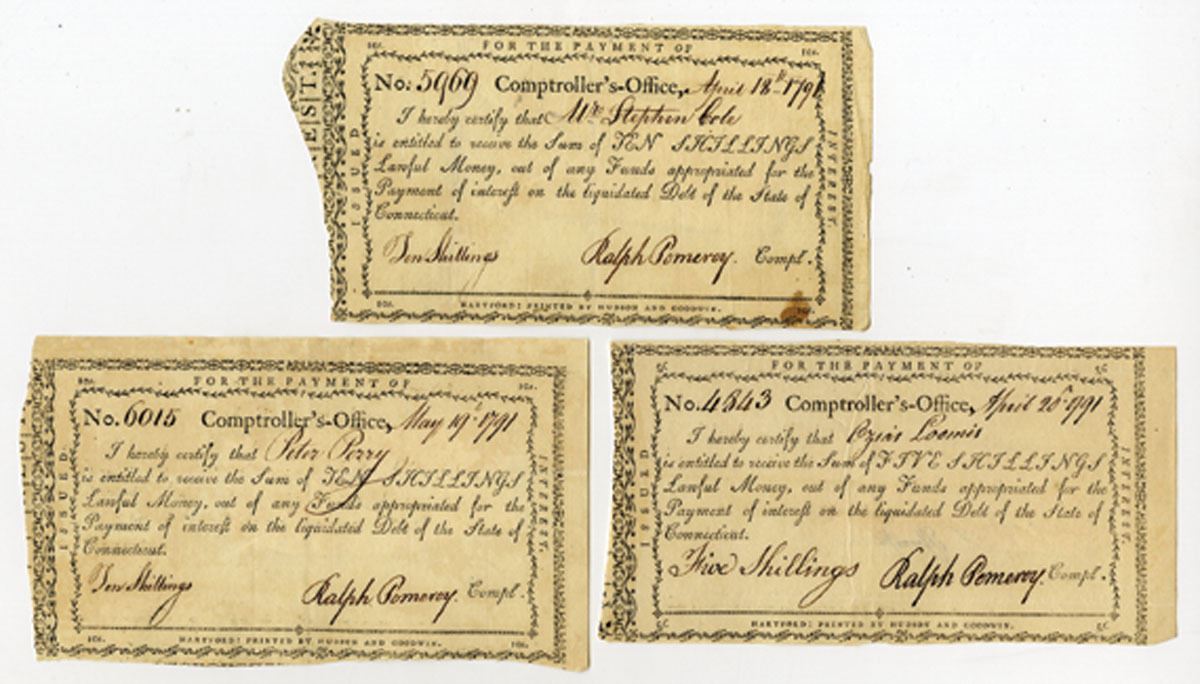 10s. FOR THE PAYMENT OF 10s.
EST.
No: 5969 Comptroller's-Office, April 18th 1791
I hereby certify that Mr. Stephen Cole
is entitled to receive the Sum of TEN SHILLINGS
Lawful Money, out of any Funds appropriated for the
Payment of interest on the liquidated Debt of the State of
Connecticut.
Ten Shillings Ralph Pomeroy. Compl.
ISSUED
INTEREST.
10s. HARTFORD: PRINTED BY HUDSON AND GOODWIN. 10s.
10s. FOR THE PAYMENT OF 10s.
No. 6015 Comptroller's-Office, May 19th 1791
I hereby certify that Peter Perry
is entitled to receive the Sum of TEN SHILLINGS
Lawful Money, out of any Funds appropriated for the
Payment of interest on the liquidated Debt of the State of
Connecticut.
Ten Shillings Ralph Pomeroy. Compl.
ISSUED
INTEREST.
10s. HARTFORD: PRINTED BY HUDSON AND GOODWIN. 10s.
5s. FOR THE PAYMENT OF 5s.
No. 4843 Comptroller's-Office, April 20th 1791
I hereby certify that Ozias Loomis
is entitled to receive the Sum of FIVE SHILLINGS
Lawful Money, out of any Funds appropriated for the
Payment of interest on the liquidated Debt of the State of
Connecticut.
Five Shillings Ralph Pomeroy. Compl.
ISSUED
INTEREST.
HARTFORD: PRINTED BY HUDSON AND GOODWIN.